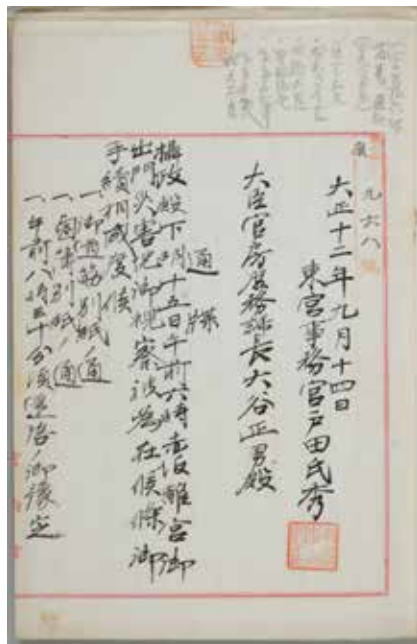 九六八
大正十二年九月十四日
東宮事務官戸田氏秀
大臣官房庶務課長大谷正男殿
通牒
摂政殿下明十五日午前六時赤坂離宮御
出門災害状況御視察被為在候條御
手續相成度候
一、御道筋別紙ノ通
一、供奉別紙ノ通
一、午前八時三十分頃還啓ノ御豫定